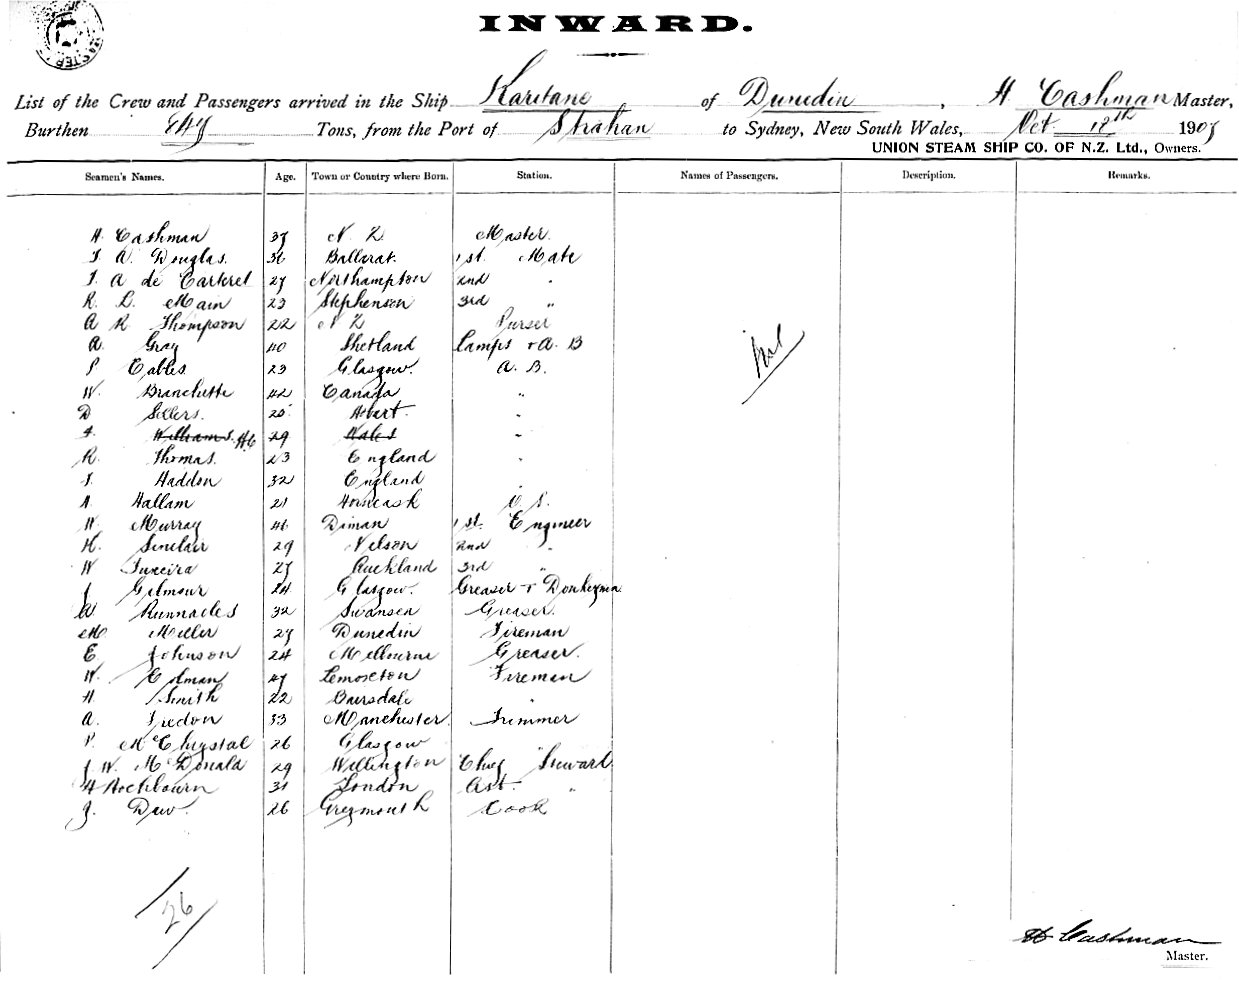 INWARD.
List of the Crew and Passengers arrived in the Ship Karitane of Dunedin, H Cashman Master,
Burthen 847 Tons, from the Port of Strahan to Sydney, New South Wales, Oct 12th 1907
UNION STEAM SHIP CO. OF N.Z. Ltd., Owners.
Seamen's Names. Age. Town or Country where Born. Station. Names of Passengers. Description. Remarks.
H. Cashman 37 N. Z. Master.
A. Douglas. 36 Ballarat. 1st. Mate
A de Carteret 27 Northampton 2nd "
R. L. Main 23 Stephenson 3rd "
A R Thompson 22 N Z Purser
A. Gray 40 Shetland Lamps + A. B
Cables 23 Glasgow. A. B.
W. Branchette 42 Canada "
D Sellers. 25 Hobart. "
Williams. 29 Wales "
R. Thomas. 23 England "
Haddon 32 England "
A. Hallam 21 O. S.
W. Murray 46 1st. Engineer
H. Sinclair 29 Nelson 2nd "
W 27 Auckland 3rd "
J Gilmour 24 Glasgow. Greaser + Donkeyman
A Runnacles 32 Swansea Greaser.
M. Miller 27 Dunedin Fireman
E. Johnson 24 Melbourne Greaser.
W. Colman 47 Fireman
H. Smith 22 Bairsdale "
A. Fredon 33 Manchester. Trimmer
P. McChrystal 26 Glasgow "
J W. McDonald 29 Wellington Chief Steward
H Rochbourn 31 London Ast. "
J. Daw. 26 Greymouth Cook
Nil
26
H Cashman
Master.